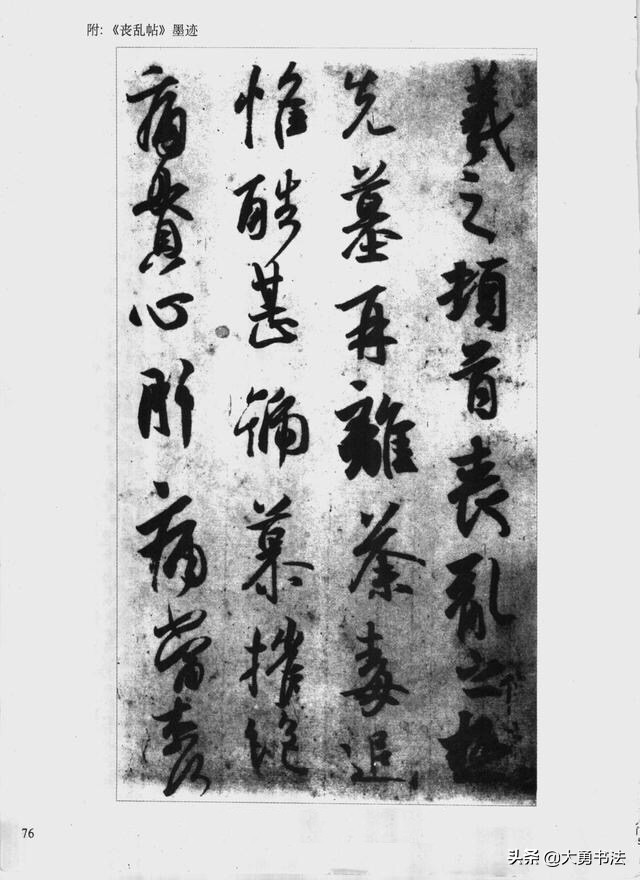 附:《丧乱帖》墨迹
羲之頓首喪亂之極
先墓再離荼毒追
惟酷甚號慕摧絕
痛貫心肝痛當奈何
76
头条 @大勇书法